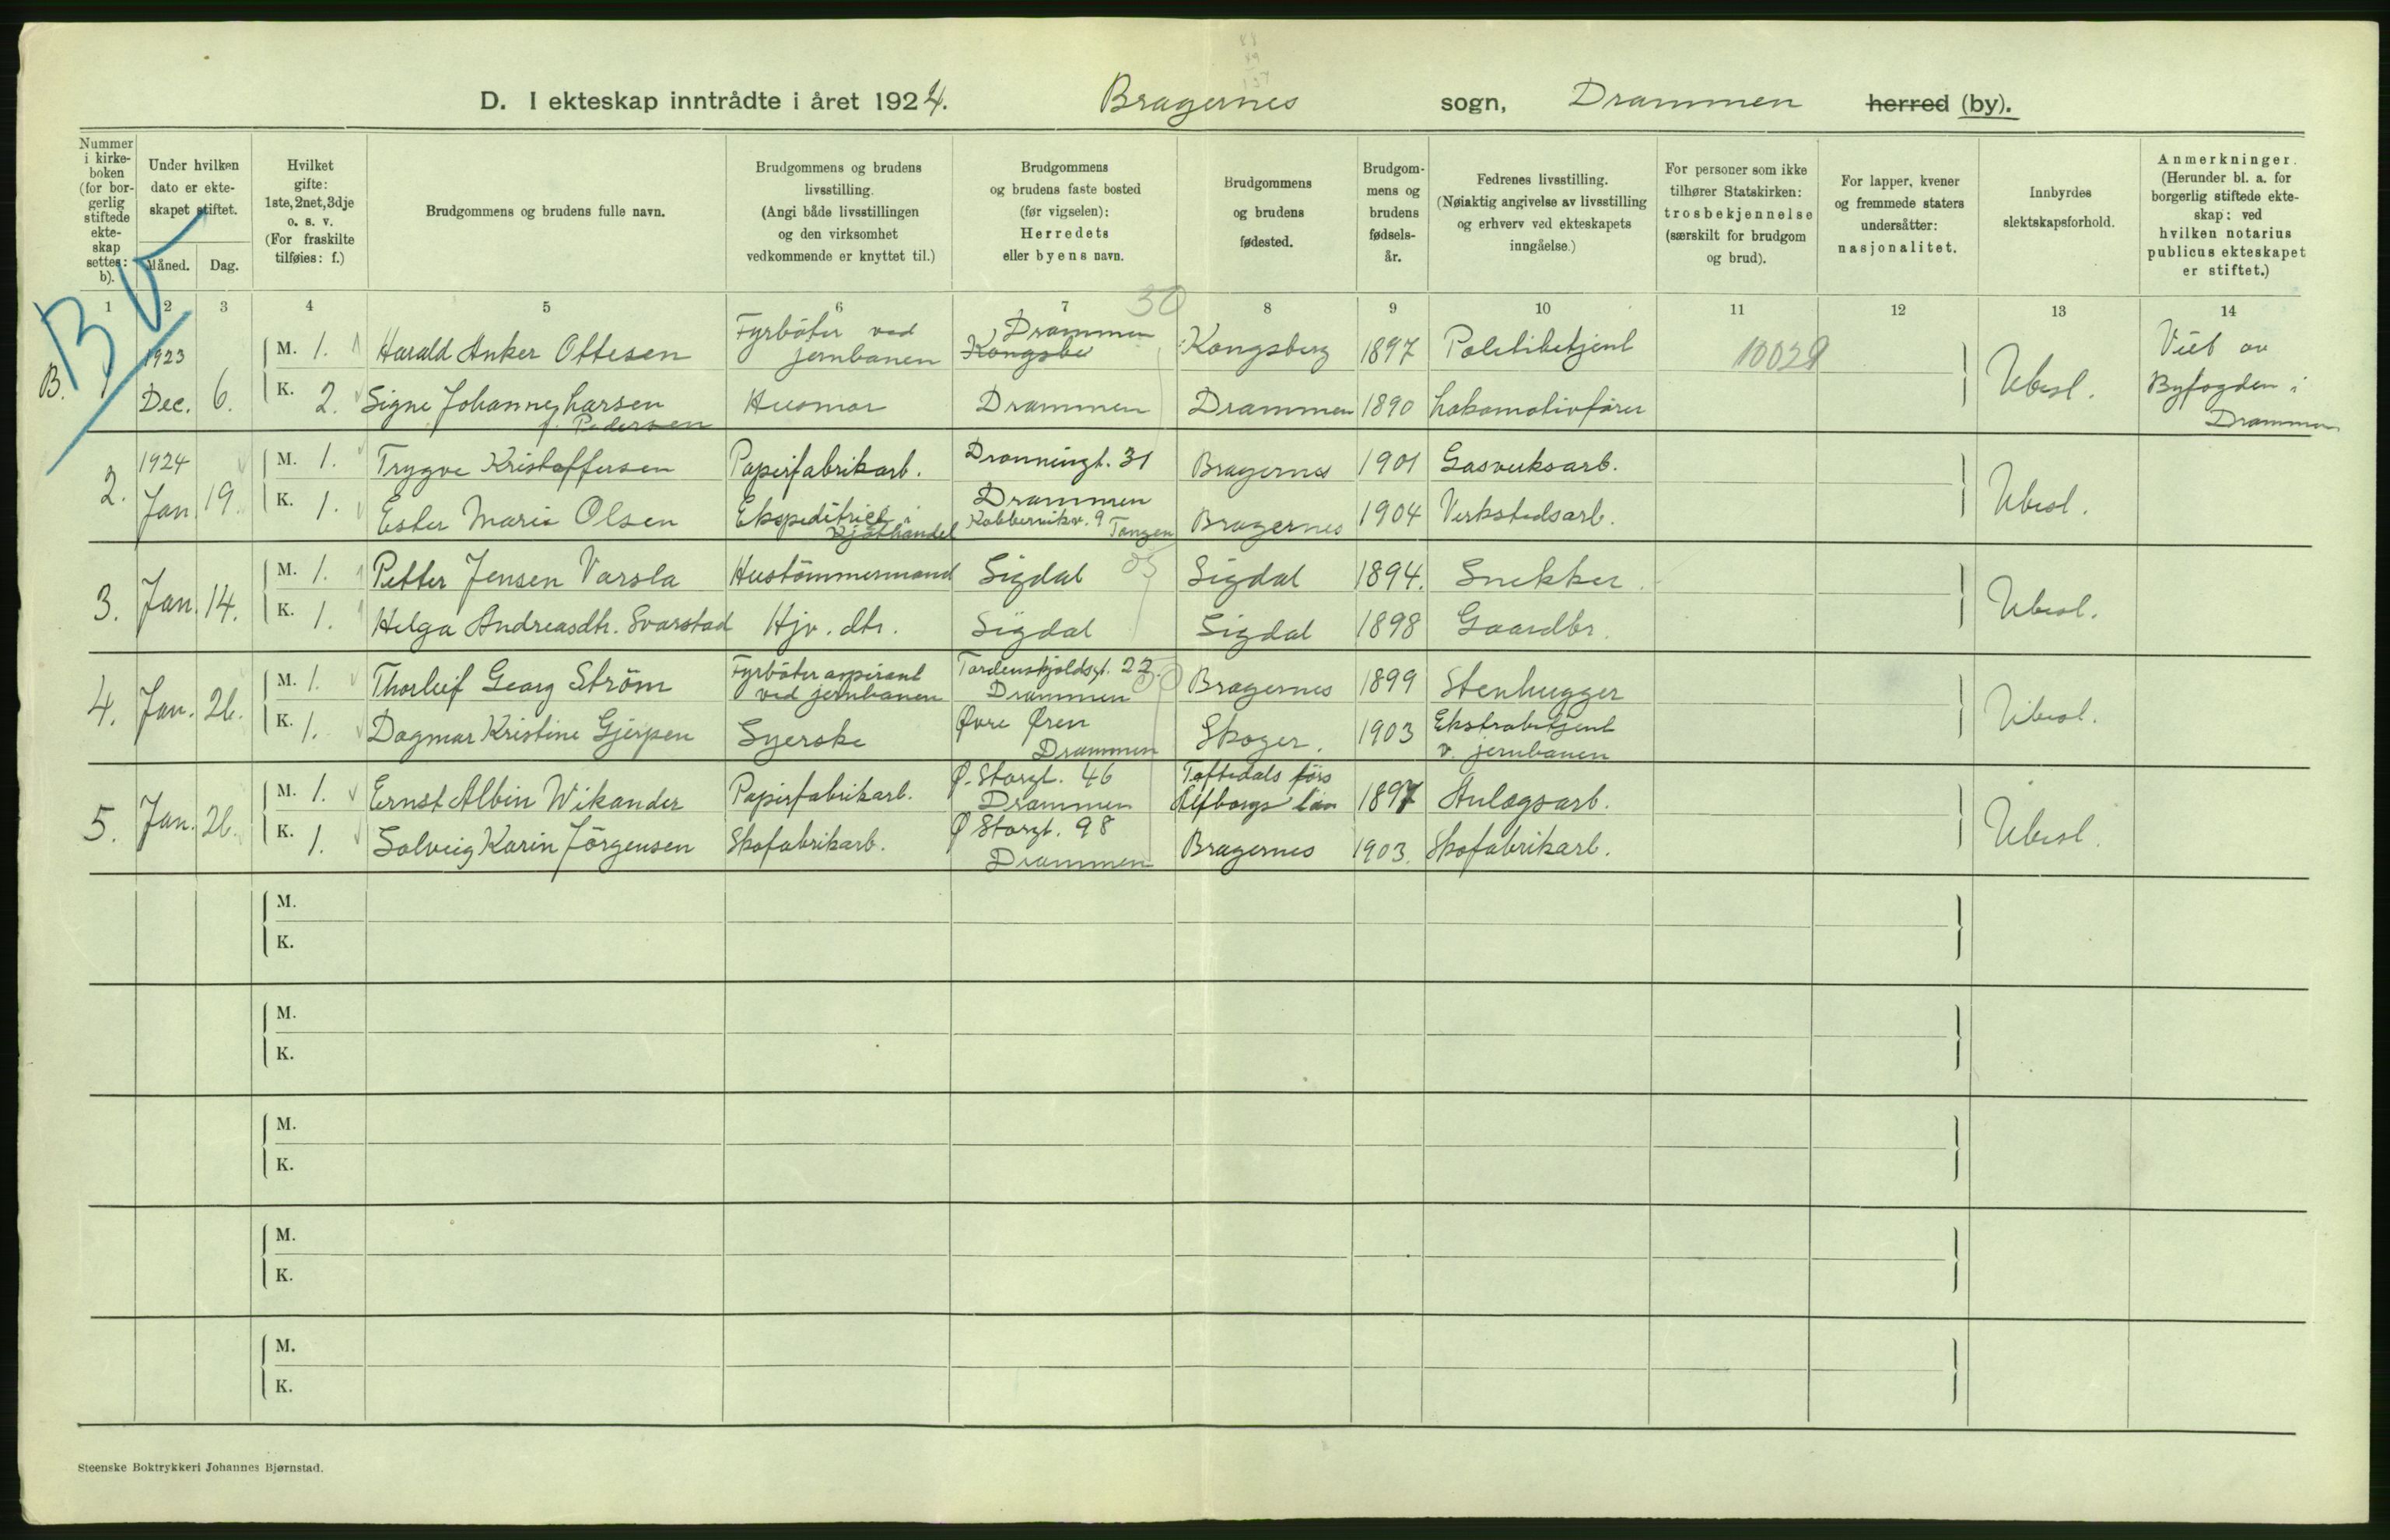 D. I ekteskap inntrådte i året 1924. Bragernes sogn, Drammen herred (by).
Nummer i kirke-boken (for bor-gerlig stiftede ekte-skap settes: b).
Under hvilken dato er ekte-skapet stiftet.
Måned. Dag.
Hvilket gifte: 1ste, 2net, 3dje o. s. v. (For fraskilte tilføies: f.)
Brudgommens og brudens fulle navn.
Brudgommens og brudens livsstilling. (Angi både livsstillingen og den virksomhet vedkommende er knyttet til.)
Brudgommens og brudens faste bosted (før vigselen): Herredets eller byens navn.
Brudgommens og brudens fødested.
Brudgom-mens og brudens fødsels-år.
Fedrenes livsstilling. (Nøiaktig angivelse av livsstilling og erhverv ved ekteskapets inngåelse.)
For personer som ikke tilhører Statskirken: trosbekjennelse (særskilt for brudgom og brud).
For lapper, kvener og fremmede staters undersåtter: nasjonalitet.
Innbyrdes slektskapsforhold.
Anmerkninger. (Herunder bl. a. for borgerlig stiftede ekte-skap: ved hvilken notarius publicus ekteskapet er stiftet.)
1 2 3 4 5 6 7 8 9 10 11 12 13 14
30
B. 1 1923 Dec. 6.
M. 1. Harald Anker Ottesen Fyrböter ved jernbanen Drammen Kongsbe Kongsberg 1897 Politibetjent 10029
K. 2. Signe Johanne Larsen f. Pedersen Husmor Drammen Drammen 1890 Lokomotivfører
Ubesl. Viet av Byfogden i Drammen
2. 1924 Jan. 19.
M. 1. Trygve Kristoffersen Papirfabrikarb. Dronningt. 31 Drammen Bragernes 1901 Gasverksarb.
K. 1. Ester Marie Olsen Ekspeditrice i Kjøthandel Kobbervikv. 9 Tangen Bragernes 1904 Verkstedsarb.
Ubesl.
3. Jan. 14.
M. 1. Petter Jensen Varsla Hustömmermand Sigdal Sigdal 1894. Snekker
K. 1. Helga Andreasdtr. Svarstad Hjv. dtr. Sigdal Sigdal 1898 Gaardbr.
Ubesl.
4. Jan. 26.
M. 1. Thorleif Georg Ström Fyrböteraspirant ved jernbanen Tordenskjoldsgt. 22. Drammen Bragernes 1899 Stenhugger
K. 1. Dagmar Kristine Gjerpen Syerske Øvre Øren Drammen Skoger. 1903 Ekstrabetjent v. jernbanen
Ubesl.
5. Jan. 26.
M. 1. Ernst Albin Wikander Papirfabrikarb. Ø. Storgt. 46 Drammen Töftedals förs Älfborgs län 1897 Anlægsarb.
K. 1. Solveig Karin Jörgensen Skofabrikarb. Ø Storgt. 98 Drammen Bragernes 1903. Skofabrikarb.
Ubesl.
M.
K.
M.
K.
M.
K.
M.
K.
M.
K.
Steenske Boktrykkeri Johannes Bjørnstad.